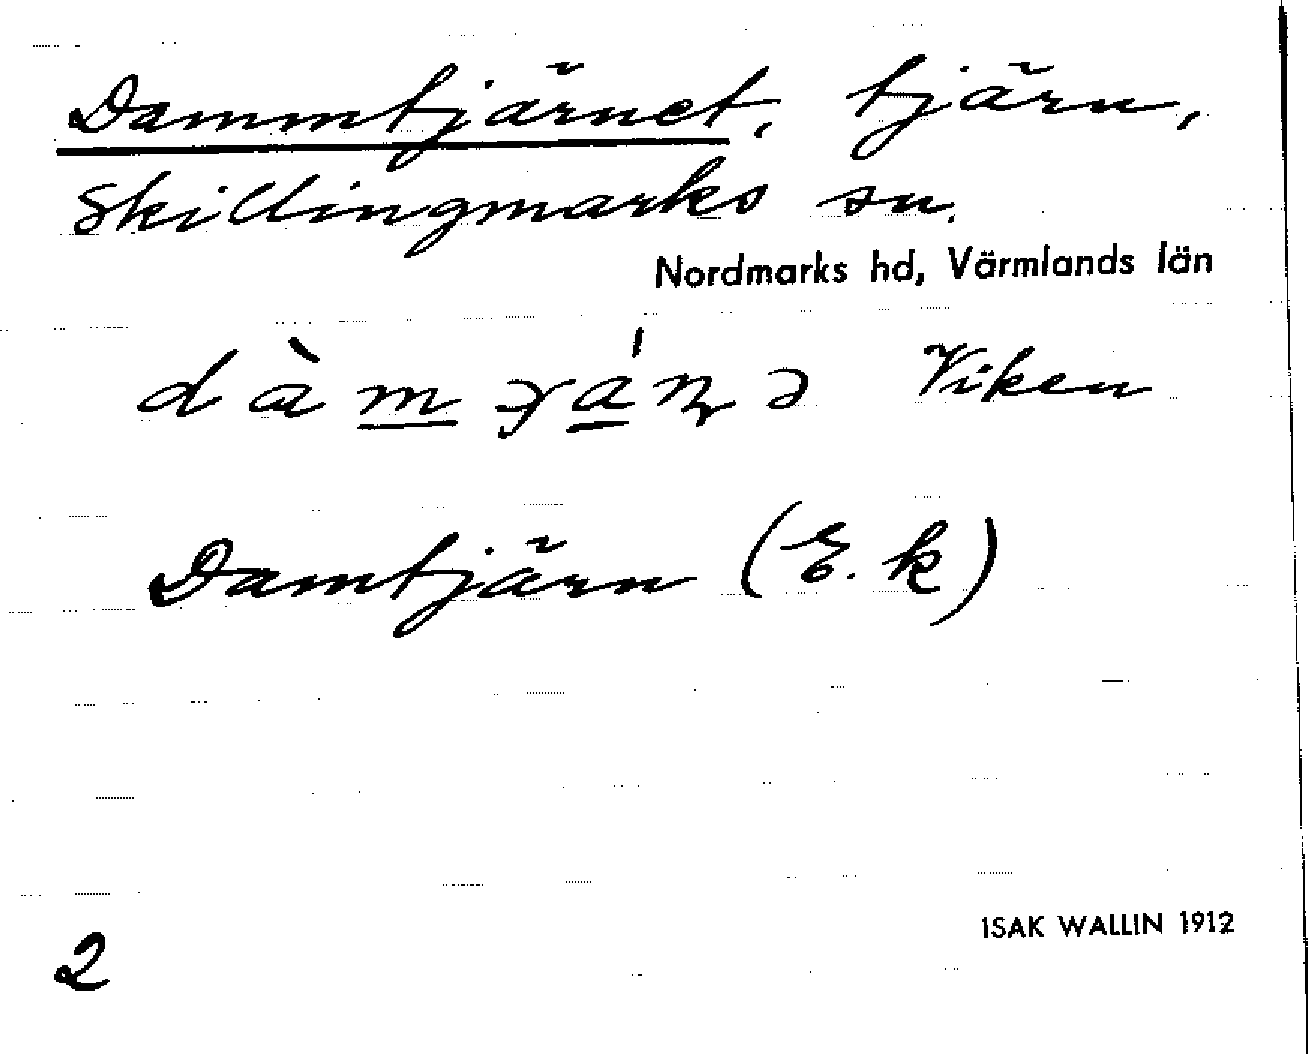 Dammtjärnet, tjärn,
Skillingmarks sn.
Nordmarks hd, Värmlands län
Viken
Damtjärn (E. k)
ISAK WALLIN 1912
2